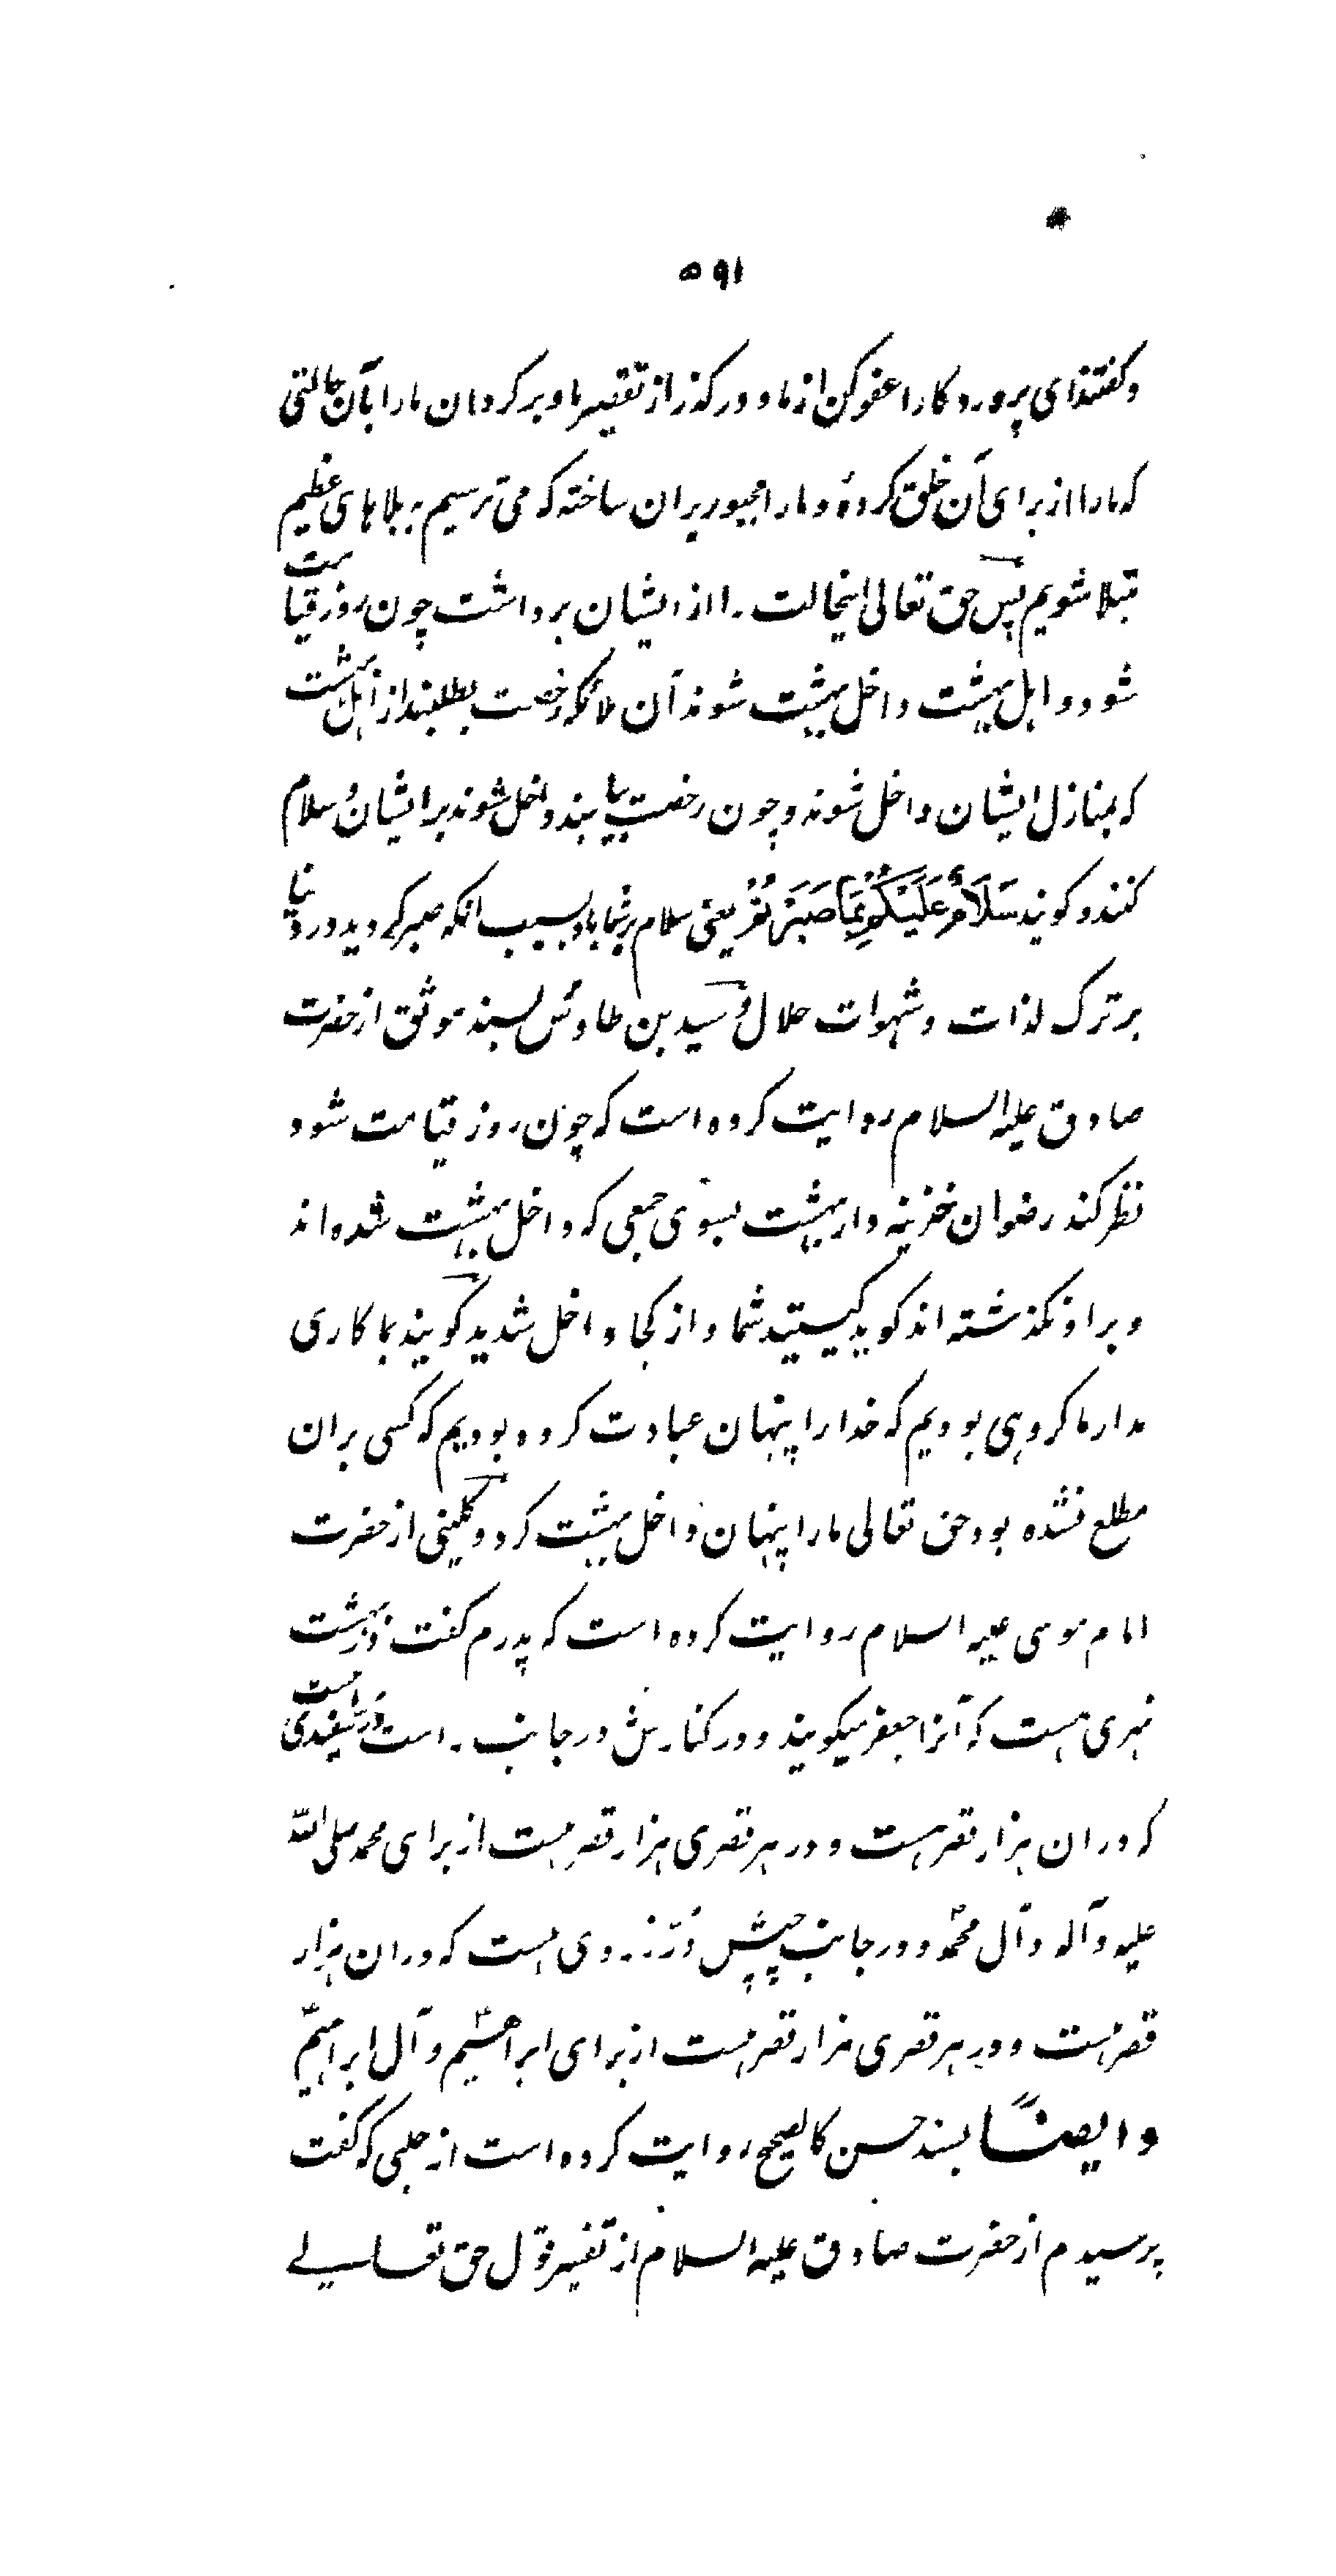 ۵۹۱
و کفتند ای پرورد کارا عفو کن از ما و در کذر از تقصیر ما و بر کردان ما را بآن حالتی
که ما را از برای آن خلق کردهٔ و ما را مجبور بران ساختهٔ که می ترسیم به بلاهای عظیم
مبتلا شویم پس حق تعالی اینحالت را از ایشان برداشت چون روز قیامت
شود و اهل بهشت داخل بهشت شوند آن ملائکه رخصت بطلبند از اهل بهشت
که بمنازل ایشان داخل شوند و چون رخصت بیابند داخل شوند بر ایشان و سلام
کنند و کویند سَلَامٌ عَلَیْکُمْ بِمَا صَبَرْتُمْ یعنی سلام بر شما باد بسبب انکه صبر کردید در دنیا
بر ترک لذات و شهوات حلال و سید بن طاوُس بسند موثق از حضرت
صادق علیه السلام روایت کرده است که چون روز قیامت شود
نظر کند رضوان خزینه دار بهشت بسوی جمعی که داخل بهشت شده اند
و بر او نکذشته اند کوید کیستید شما و از کجا داخل شدید کویند بما کاری
مدار ما کروهی بودیم که خدا را پنهان عبادت کرده بودیم که کسی بران
مطلع نشده بود حق تعالی ما را پنهان داخل بهشت کرد و کلینی از حضرت
امام موسی علیه السلام روایت کرده است که پدرم کفت در بهشت
نهری هست که آنرا جعفر میکویند و در کنارش در جانب راست دُر سفیدی است
که در ان هزار قصر هست و در هر قصری هزار قصر هست از برای محمد صلی الله
علیه و آله و آل محمدؐ و در جانب چپش دُرّ زردی هست که در ان هزار
قصر هست و در هر قصری هزار قصر هست از برای ابراهیمؑ و آل ابراهیمؑ
و ایضًا بسند حسن کالصحیح روایت کرده است از حلبی که کفت
پرسیدم از حضرت صادق علیه السلام از تفسیر قول حق تعالے